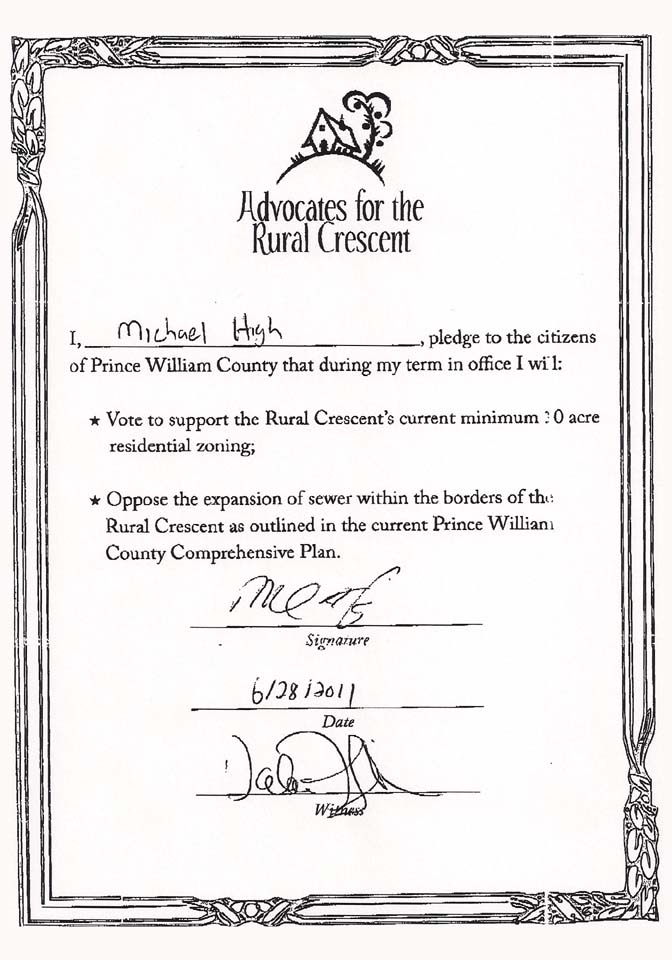 Advocates for the
Rural Crescent
I, Michael High, pledge to the citizens
of Prince William County that during my term in office I will:
★ Vote to support the Rural Crescent's current minimum 10 acre
residential zoning;
★ Oppose the expansion of sewer within the borders of the
Rural Crescent as outlined in the current Prince William
County Comprehensive Plan.
Signature
6/28/2011
Date
Witness